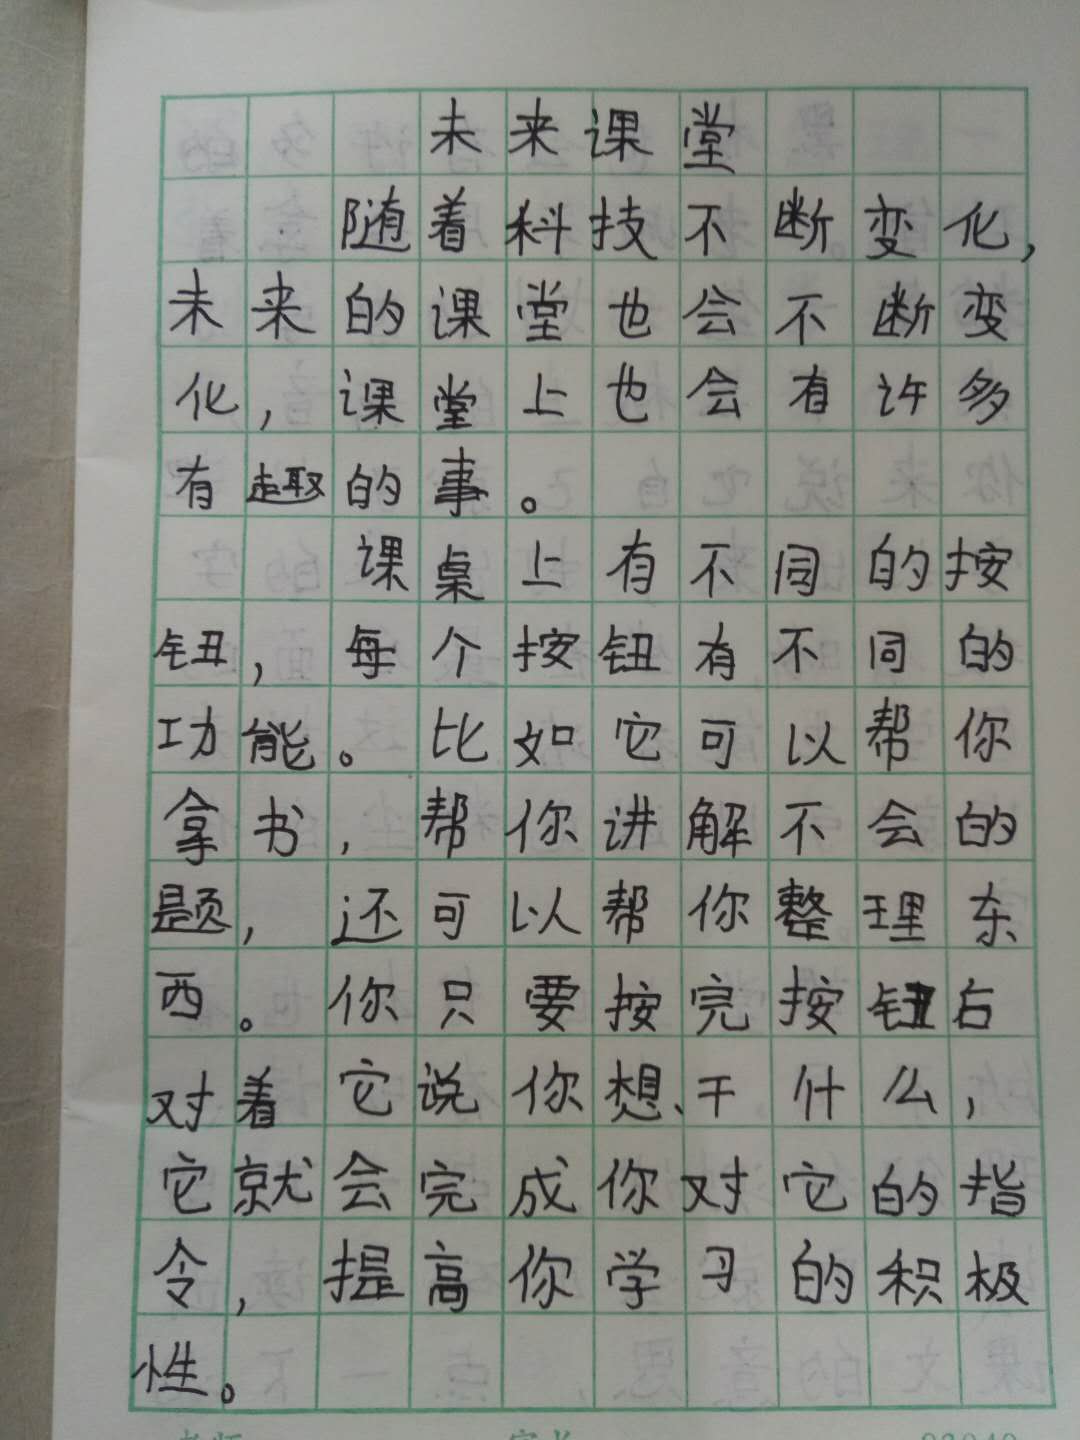 未来课堂
随着科技不断变化,
未来的课堂也会不断变
化,课堂上也会有许多
有趣的事。
课桌上有不同的按
钮,每个按钮有不同的
功能。比如它可以帮你
拿书,帮你讲解不会的
题,还可以帮你整理东
西。你只要按完按钮右
对着它说你想、干什么,
它就会完成你对它的指
令,提高你学习的积极
性。